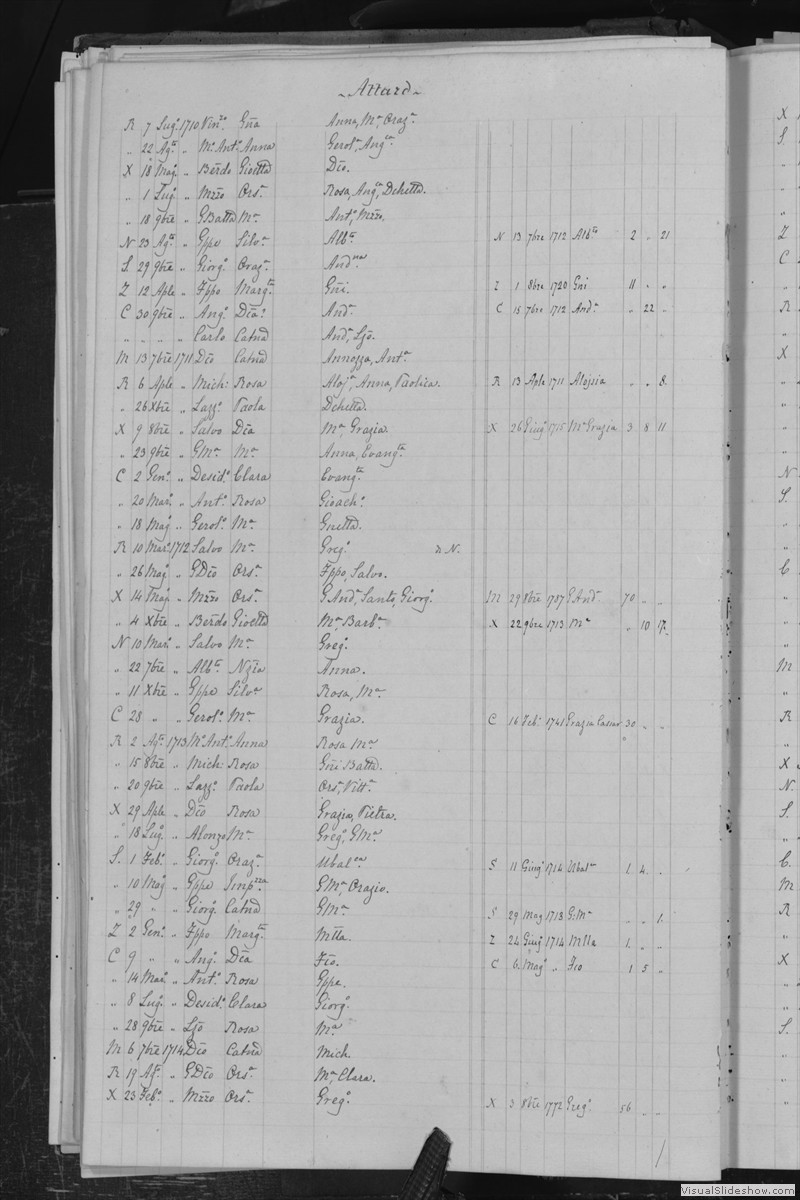 ~ Attard ~
R 7 Lugº 1710 Vinzº Gña Anna, Mª, Orazª
„ 22 Agº „ Mª Antª Anna Gerolª, Angca
X 18 Magº „ Berdo Gioetta Dio.
„ 1 Lugº „ Mzzo Orsª Rosa, Angª, Dchetta.
„ 18 9bre „ GBatta Mª Antº, Mzzo.
N 23 Agº „ Gppe Silvª Albta N 13 7bre 1712 Albta 2 „ 21
S 29 9bre „ Giorgº Orazª Andna
Z 12 Aple „ Fppo Margta Gñi. Z 1 8bre 1720 Gni 11 „ „
C 30 9bre „ Angº Dia? Andª C 15 7bre 1712 Andª „ 22 „
„ „ „ „ Carlo Catna Andª, Ljo.
M 13 7bre 1711 Dio Catna Annezza, Antª
R 6 Aple „ Mich: Rosa Alojª, Anna, Paolica. R 13 Aple 1711 Alojsia „ „ 8
„ 26 Xbre „ Lazzº Paola Dchetta.
X 9 8bre „ Salvo Dia Mª, Grazia. X 26 Giugº 1715 Mª Grazia 3 8 11
„ 23 9bre „ GMª Mª Anna, Evangta
C 2 Genº „ Desidº Clara Evangta
„ 20 Marº „ Antº Rosa Gioachº
„ 18 Magº „ Gerolº Mª Gnetta.
R 10 Marº 1712 Salvo Mª Gregº D. N.
„ 26 Magº „ GDio Orsª Fppo, Salvo.
X 14 Magº „ Mzzo Orsª GAndª, Santo, Giorgº M 29 8bre 1787 GAndª 70 „ „
„ 4 Xbre „ Berdo Gioetta Mª Barbª X 22 9bre 1713 Mª „ 10 17
N 10 Marº „ Salvo Mª Gregº
„ 22 7bre „ Albto Nzia Anna.
„ 11 Xbre „ Gppe Silvª Rosa, Mª
C 28 „ „ Gerolº Mª Grazia. C 16 Febº 1741 Grazia Cassar 30 „ „
R 2 Agº 1713 Mª Antº Anna Rosa Mª
„ 15 8bre „ Mich: Rosa Gñi Batta.
„ 20 9bre „ Lazzº Paola Orsª, Vittª
X 29 Aple „ Dio Rosa Grazia, Pietra.
„ 18 Lugº „ Alonzo Mª Gregº, GMª
S. 1 Febº „ Giorgº Orazª Ubalca S 11 Giugº 1714 Ubalca 1 4 „
„ 10 Magº „ Gppe Impzza GMª, Orazio.
„ 29 „ „ Giorgº Catna GMª S 29 Mag 1713 G.Mª „ „ 1
Z 2 Genº „ Fppo Margta Mtta. Z 24 Giugº 1714 Mtta 1 „ „
C 9 „ „ Angº Dia Fio. C 6 Magº „ Fio 1 5 „
„ 14 Marº „ Antº Rosa Gppe.
„ 8 Lugº „ Desidº Clara Giorgº
„ 28 9bre „ Ljo Rosa Mª
M 6 7bre 1714 Dio Catna Mich.
R 19 Agº „ GDio Orsª Mª Clara.
X 23 Febº „ Mzzo Orsª Gregº X 3 8bre 1772 Gregº 56 „ „
VisualSlideshow.com